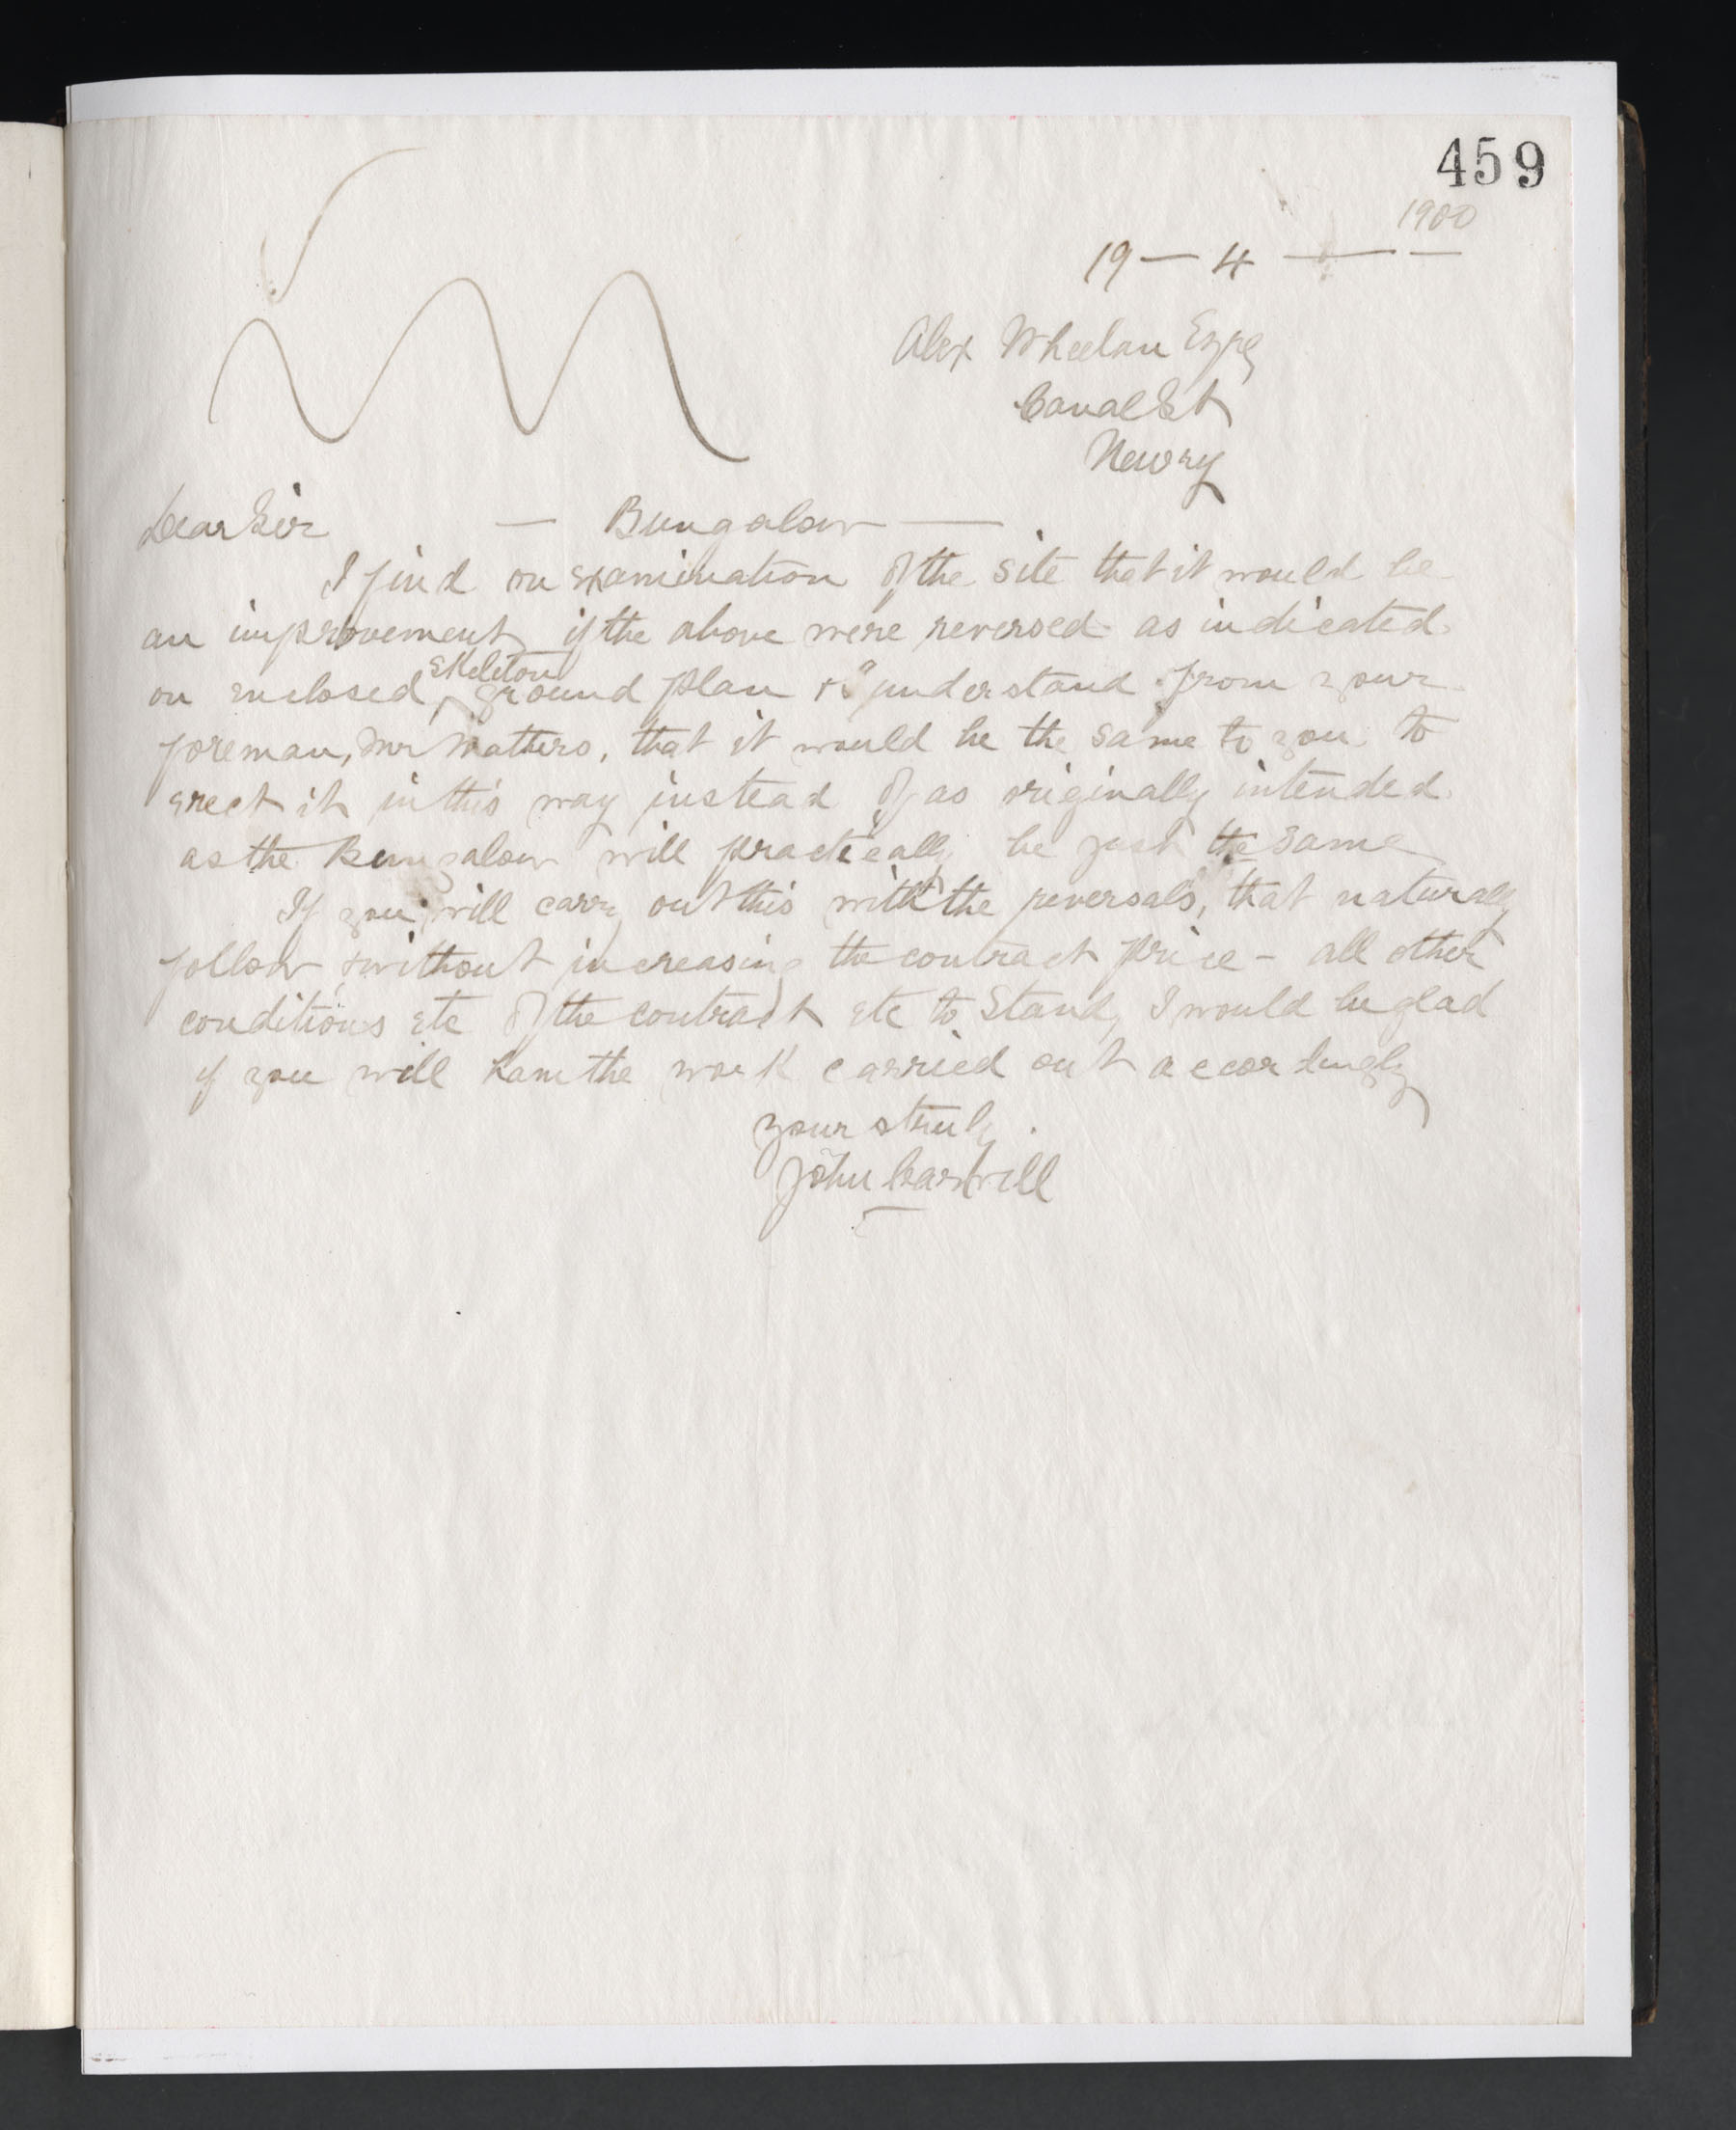 459
1900
19 — 4 — —
Alex Wheelan Esqre
Canal St
Newry
Dear Sir — Bungalow —
I find on examination of the site that it would be
an improvement if the above were reversed as indicated
on enclosed skeleton ground plan & I understand from your
foreman, Mr Watters, that it would be the same to you to
erect it in this way instead of as originally intended
as the Bungalow will practically be just the same
If you will carry out this with the reversals, that naturally
follow, & without increasing the contract price - all other
conditions etc of the contract etc to stand, I would be glad
if you will have the work carried out accordingly
yours truly.
John Caswell